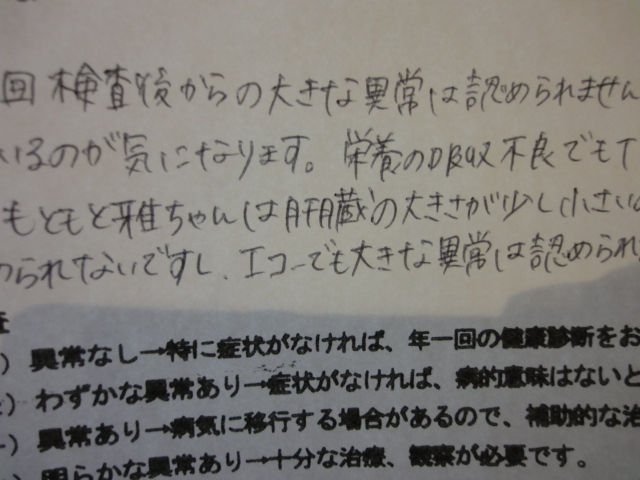 回検査後からの大きな異常は認められません
いるのが気になります。栄養の吸収不良でもT
もともと雅ちゃんは肝臓の大きさが少し小さい
められてないですし、エコーでも大きな異常は認められ
異常なし→特に症状がなければ、年一回の健康診断をお
わずかな異常あり→症状がなければ、病的意味はないと
異常あり→病気に移行する場合があるので、補助的な治
明らかな異常あり→十分な治療、観察が必要です。